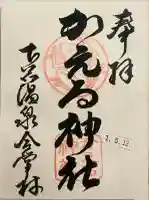 奉拝
かえる神社
7.5.13
下呂温泉合掌村